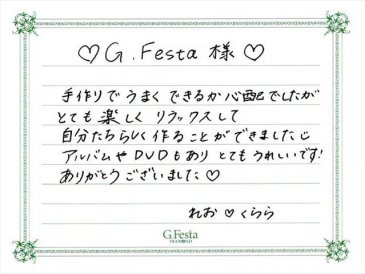 ♡ G.Festa 様 ♡
手作りで うまく できるか心配でしたが
とても楽しく リラックスして
自分たちらしく 作ることができました
アルバムや DVDもあり とてもうれしいです!
ありがとうございました♡
れお ♡ くらら
G.Festa
DIAMOND